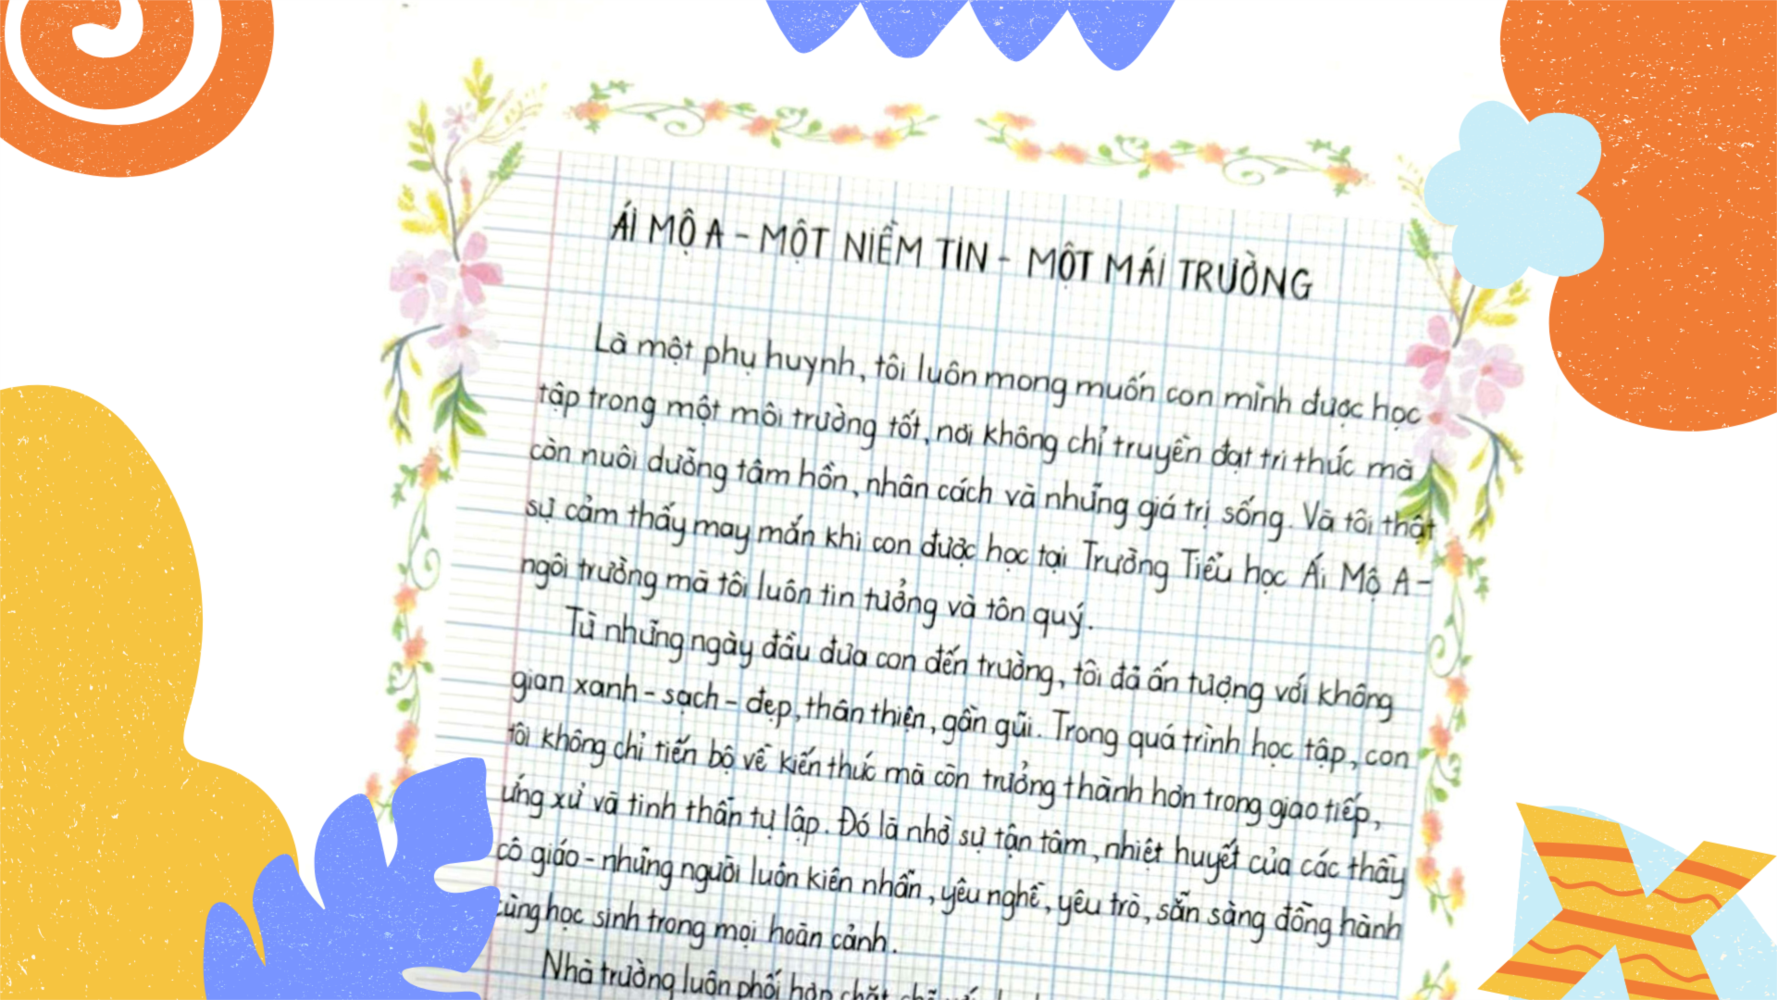 ÁI MỘ A - MỘT NIỀM TIN - MỘT MÁI TRƯỜNG
Là một phụ huynh, tôi luôn mong muốn con mình được học
tập trong một môi trường tốt, nơi không chỉ truyền đạt tri thức mà
còn nuôi dưỡng tâm hồn, nhân cách và những giá trị sống. Và tôi thật
sự cảm thấy may mắn khi con được học tại Trường Tiểu học Ái Mộ A -
ngôi trường mà tôi luôn tin tưởng và tôn quý.
Từ những ngày đầu đưa con đến trường, tôi đã ấn tượng với không
gian xanh - sạch - đẹp, thân thiện, gần gũi. Trong quá trình học tập, con
tôi không chỉ tiến bộ về kiến thức mà còn trưởng thành hơn trong giao tiếp,
ứng xử và tinh thần tự lập. Đó là nhờ sự tận tâm, nhiệt huyết của các thầy
cô giáo - những người luôn kiên nhẫn, yêu nghề, yêu trò, sẵn sàng đồng hành
cùng học sinh trong mọi hoàn cảnh.
Nhà trường luôn phối hợp chặt chẽ